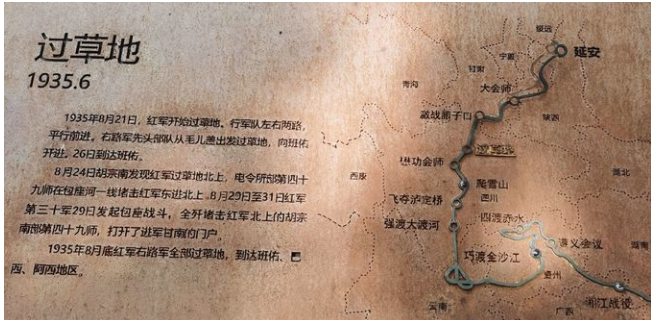 过草地
1935.6
1935年8月21日，红军开始过草地、行军队左右两路，
平行前进。右路军先头部队从毛儿盖出发过草地，向班佑
开进。26日到达班佑。
8月24日胡宗南发现红军过草地北上，电令所部第四十
九师在包座河一线堵击红军东进北上。8月29日至31日红军
第三十军29日发起包座战斗，全歼堵击红军北上的胡宗
南部第四十九师，打开了进军甘南的门户。
1935年8月底红军右路军全部过草地，到达班佑、
西、阿西地区。
绥远
延安
宁夏
甘肃
青海
大会师
陕西
激战腊子口
过草地
懋功会师
西康
爬雪山
四川
湖北
飞夺泸定桥
强渡大渡河
四渡赤水
遵义会议
湖南
巧渡金沙江
贵州
云南
广西
湘江战役